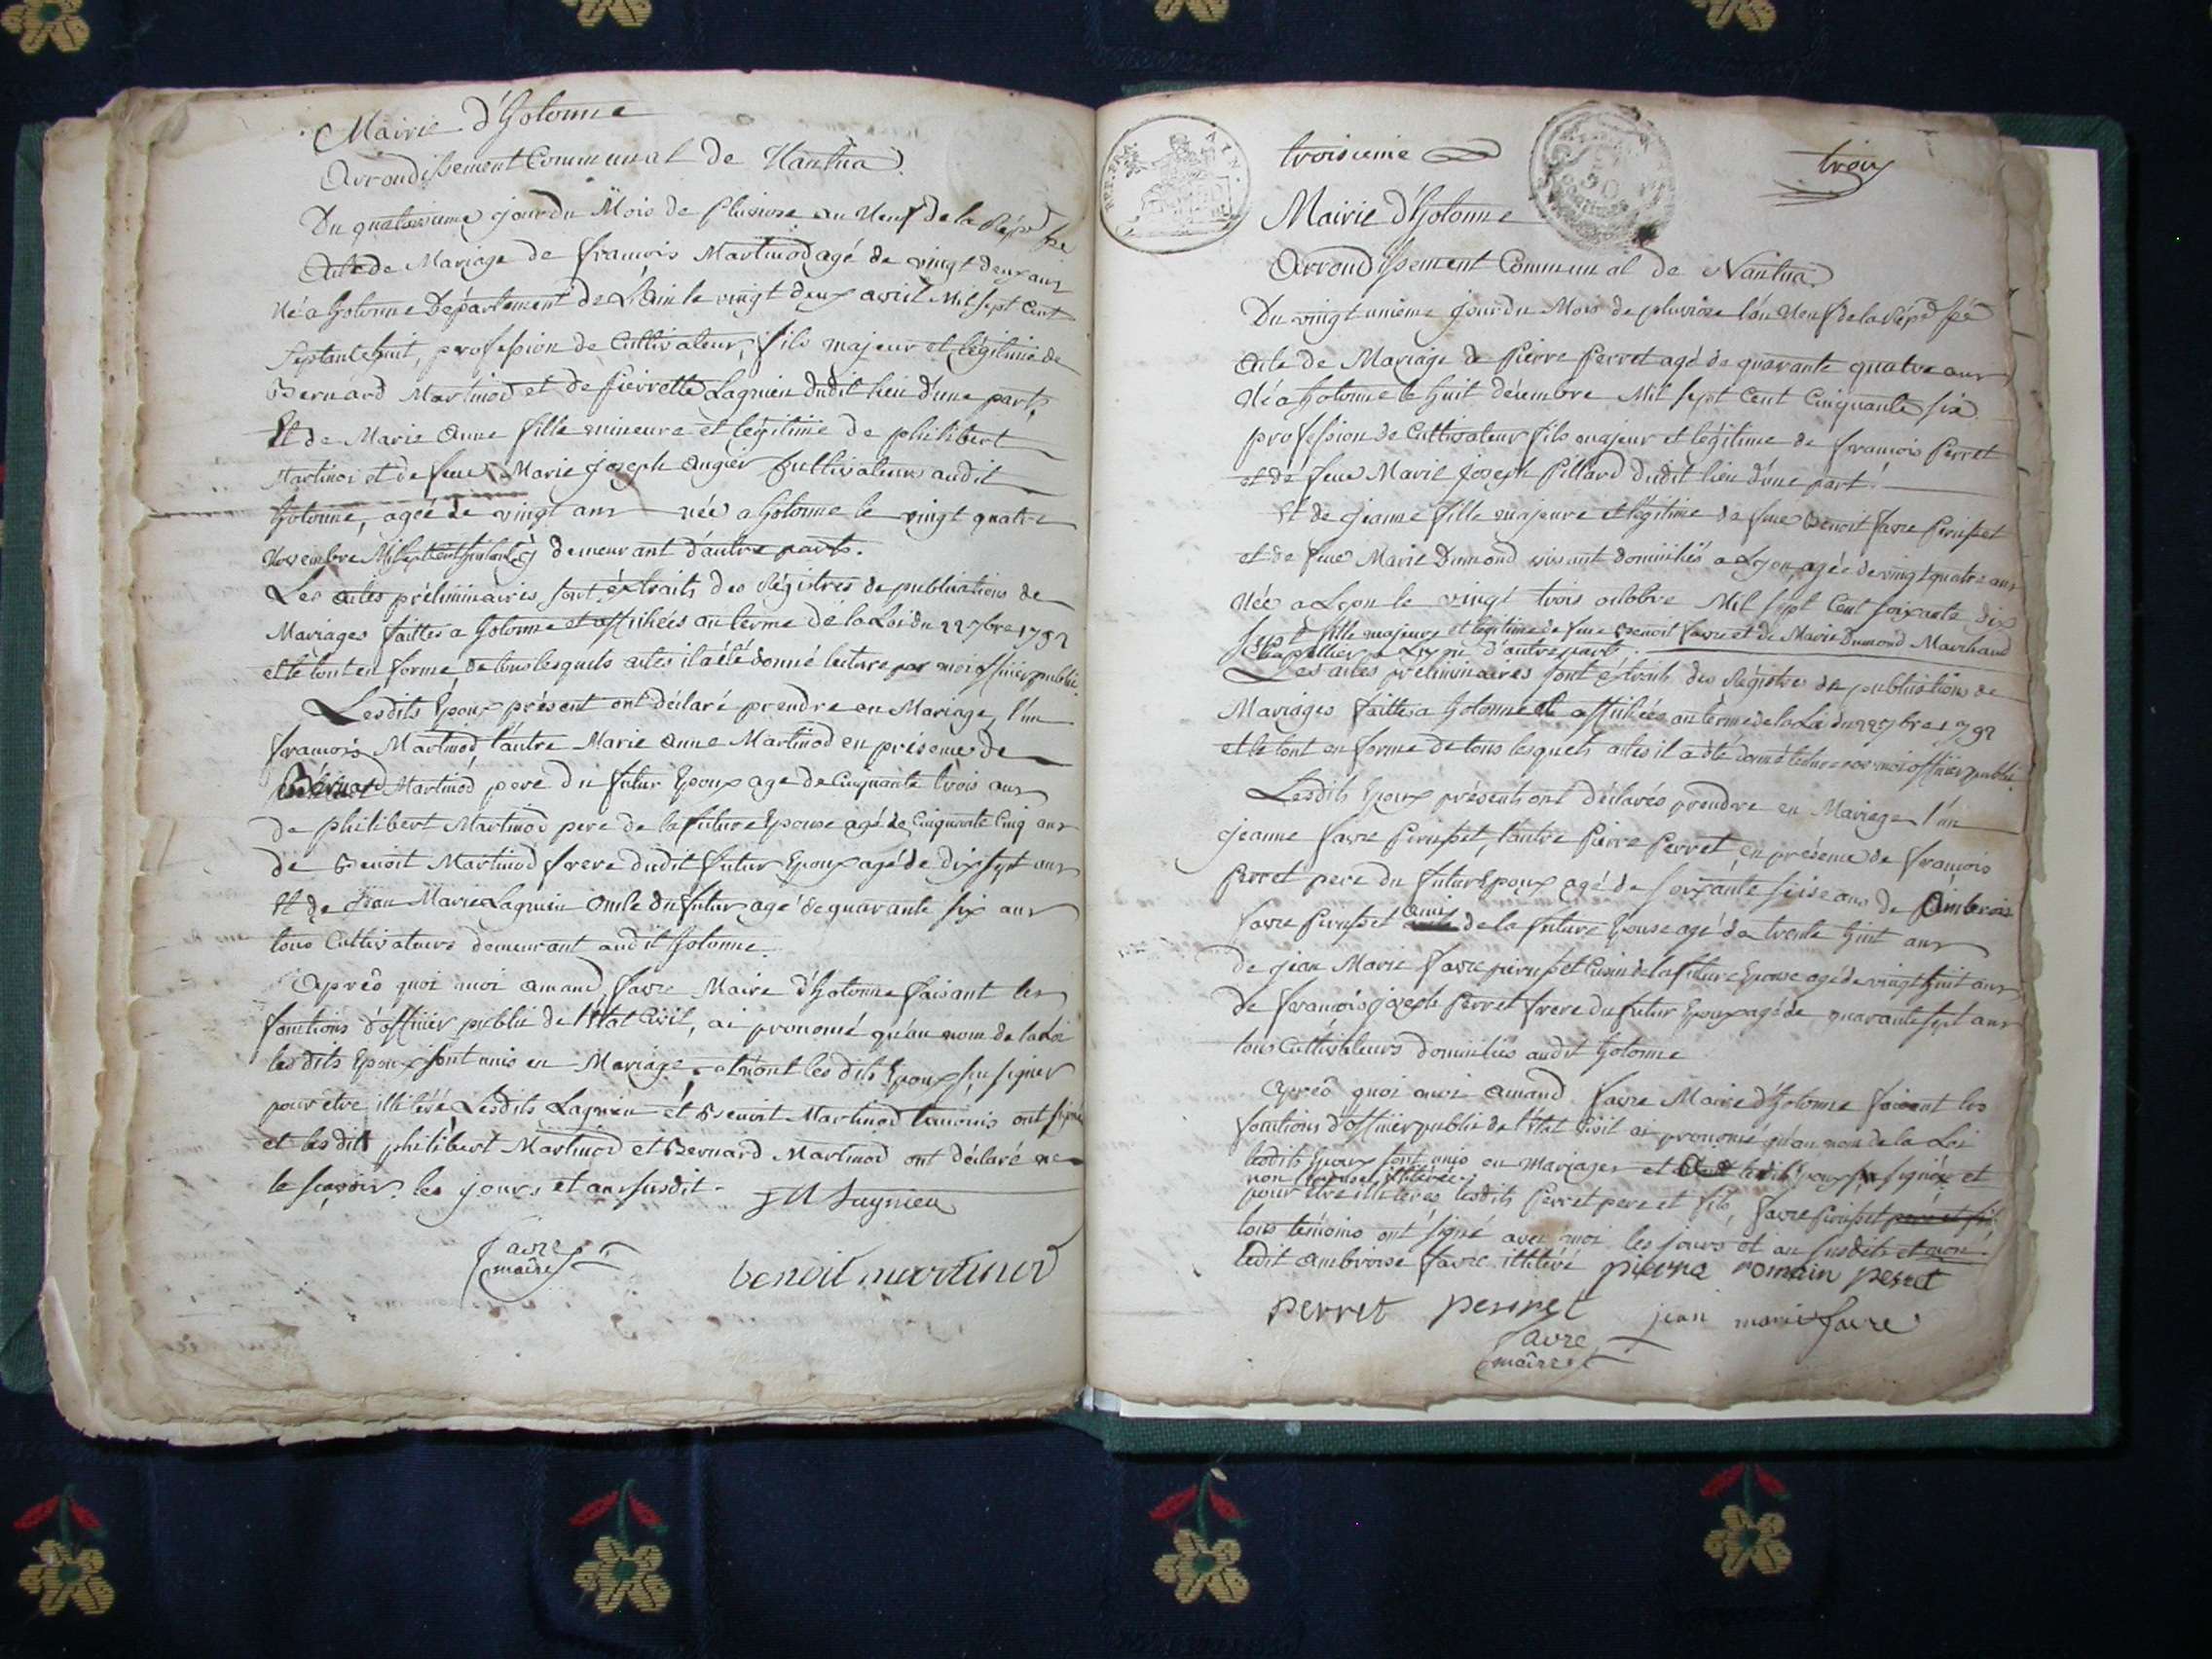 Mairie d'Hotonne
Arrondissement Communal de Nantua
Du quatorzieme jour du Mois de Pluviose an Neuf de la Répe fse
Acte de Mariage de francois Martinod agé de vingt deux ans
Né a Hotonne Département de L'Ain le vingt deux avril Mil sept Cent
Septante huit, profession de Cultivateur, fils majeur et légitime de
Bernard Martinod et de Pierrette Lagnieu dudit lieu d'une part,
Et de Marie Anne fille mineure et légitime de philibert
Martinod et de feue Marie Joseph Augier Cultivateur audit
Hotonne, agée de vingt ans née a Hotonne le vingt quatre
Novembre Mil sept cent demeurant d'autre part.
Les actes préliminaires sont éxtraits des Régistres de publications de
Mariages faittes a Hotonne et affichées au terme de la Loi du 22 7bre 1792
et le tout en forme, de tous lesquels actes il a été donné lecture par moi officier public
Lesdits Epoux présent ont déclaré prendre en Mariage, l'un
francois Martinod, l'autre Marie Anne Martinod en présence de
Bernard Martinod pere du futur Epoux agé de Cinquante trois ans
de philibert Martinod pere de la future Epouse agé de Cinquante Cinq ans
de Benoit Martinod frere dudit futur Epoux agé de dix sept ans
Et de Jean Marie Lagnieu oncle du futur agé de quarante six ans
tous Cultivateurs demeurant audit Hotonne.
Aprés quoi moi amand favre Maire d'Hotonne faisant les
fonctions d'officier public de l'état Civil, ai prononcé qu'au nom de la Loi
les dits Epoux sont unis en Mariage, et n'ont les dits Epoux su signer
pour etre illitéré Lesdits Lagnieu et Benoit Martinod temoins ont signé
et lesdits philibert Martinod et Bernard Martinod ont déclaré ne
le scavoir. les jours et an susdit.
J M Lagnieu
favre
maire
benoit martinod
troisieme
trois
REP. FRA. AIN.
Mairie d'Hotonne
Arrondissement Communal de Nantua
Du vingt unieme jour du Mois de pluviose l'an Neuf de la Répe fse
Acte de Mariage de Pierre Perret agé de quarante quatre ans
Né a Hotonne le huit décembre Mil sept Cent Cinquante six
profession de Cultivateur fils majeur et légitime de francois Perret
et de feue Marie Joseph Pillard dudit lieu d'une part.
Et de Jeanne fille majeure et légitime de feue Benoit favre
et de feue Marie Dumond vivant domiciliés a Lyon, agée de vingt quatre ans
Née a Lyon le vingt trois octobre Mil sept Cent soixante dix
Sept fille majeure et légitime de feue Benoit favre et de Marie Dumond Marchand
Chapellier a Lyon d'autre part.
Les actes préliminaires sont éxtraits des Régistres de publications de
Mariages faittes a Hotonne et affichées au terme de la Loi du 22 7bre 1792
et le tout en forme de tous lesquels actes il a été donné lecture par moi officier public
Lesdits Epoux présents ont déclarés prendre en Mariage l'un
Jeanne favre, l'autre Pierre Perret, en présence de francois
Perret pere du futur Epoux agé de soixante seise ans de Ambroise
favre ami de la future Epouse agé de trente huit ans
de Jean Marie favre Cousin de la future Epouse agé de vingt huit ans
de francois joseph Perret frere du futur Epoux agé de quarante sept ans
tous Cultivateurs domiciliés audit Hotonne
Aprés quoi moi amand favre Maire d'Hotonne faisant les
fonctions d'officier public de l'état Civil ai prononcé qu'au nom de la Loi
lesdits Epoux sont unis en mariage et ledit Epoux signé et
non
pour etre illiteres lesdits Perret pere et fils, favre pere et fils
tous temoins ont signé avec moi les jours et an susdits et non
ledit Ambroise favre illitéré pierre romain peret
perret perret jean marie favre
favre
maire